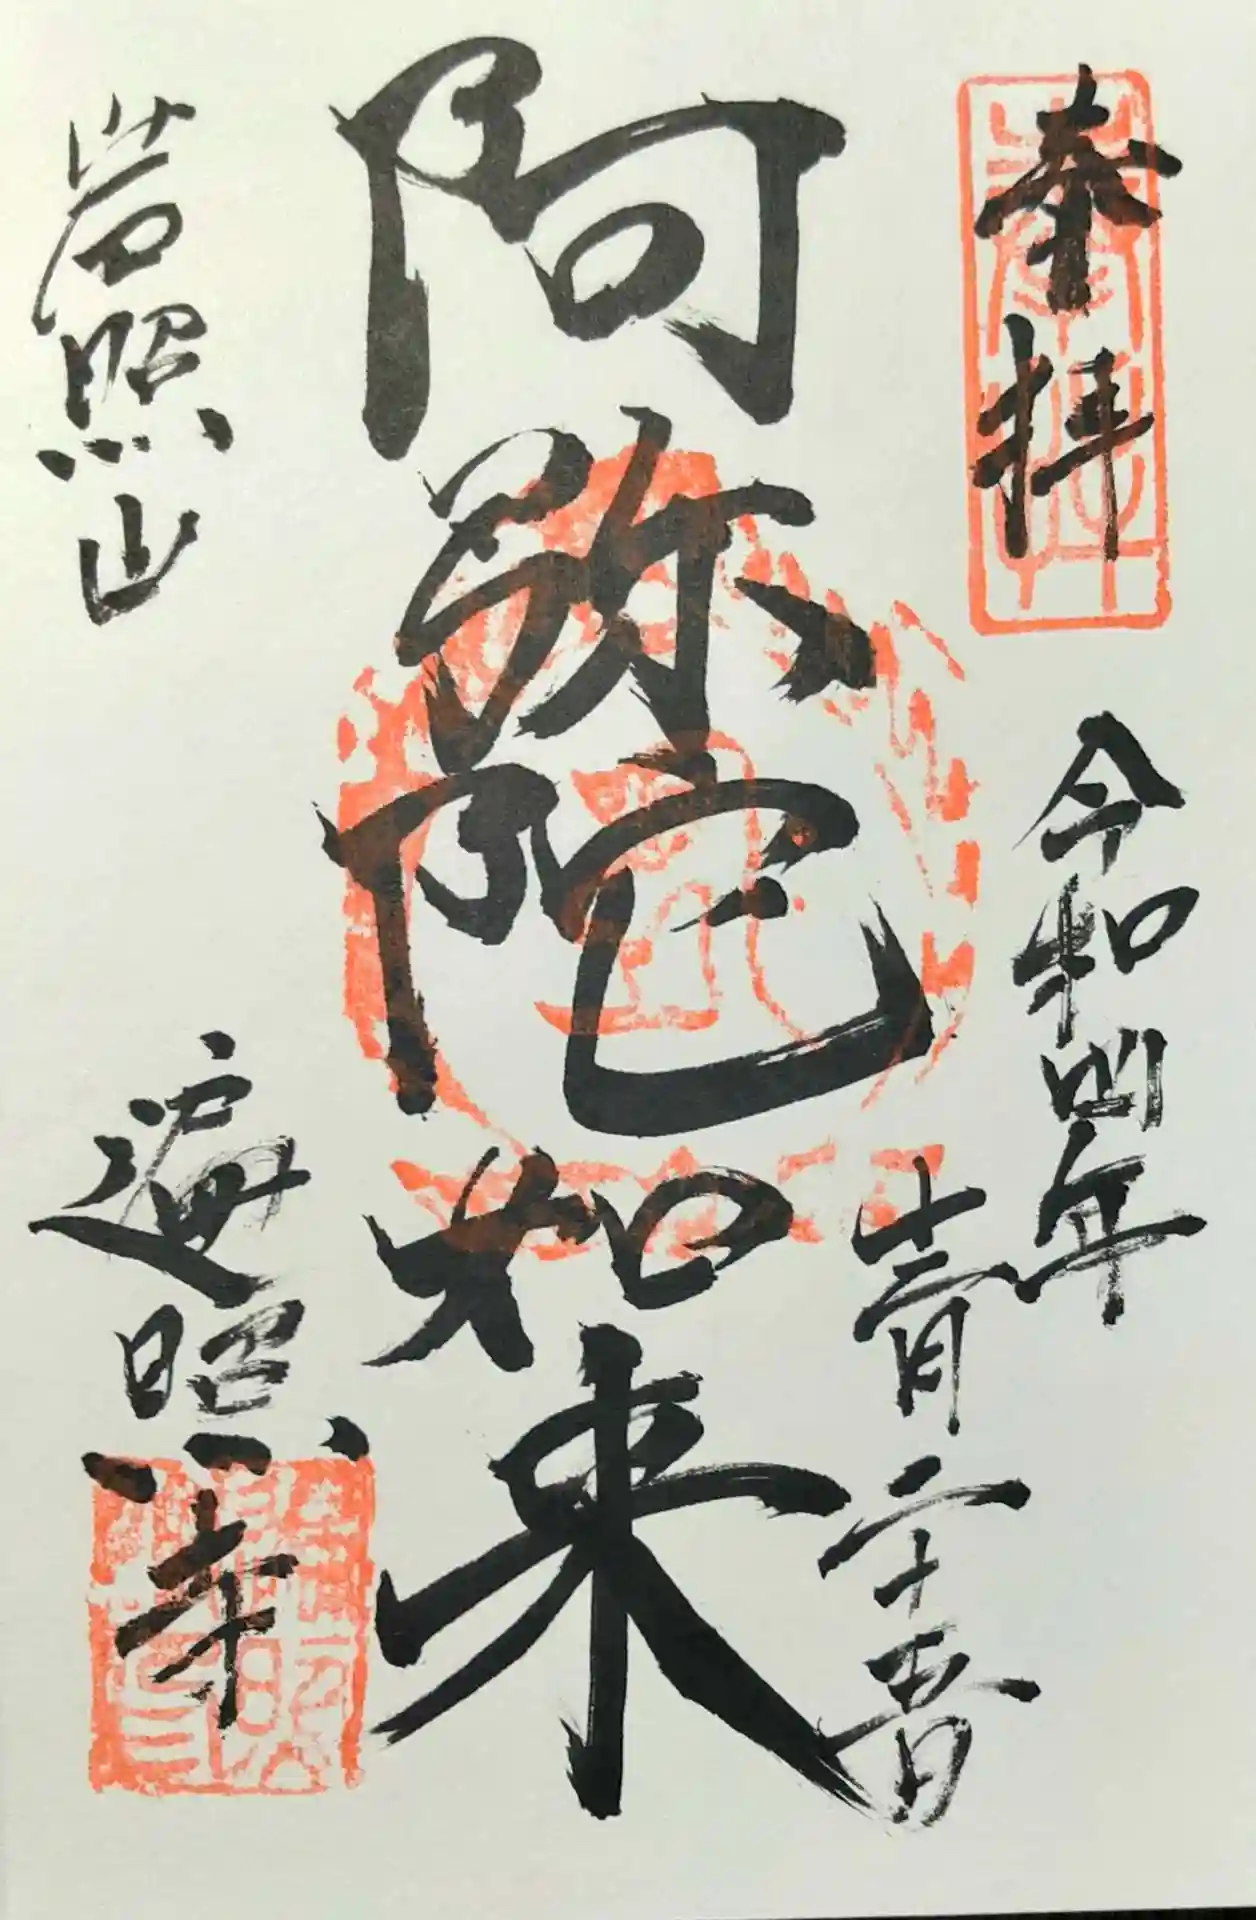 奉拝
令和四年
十二月二十五日
阿弥陀如来
岩照山
遍照寺